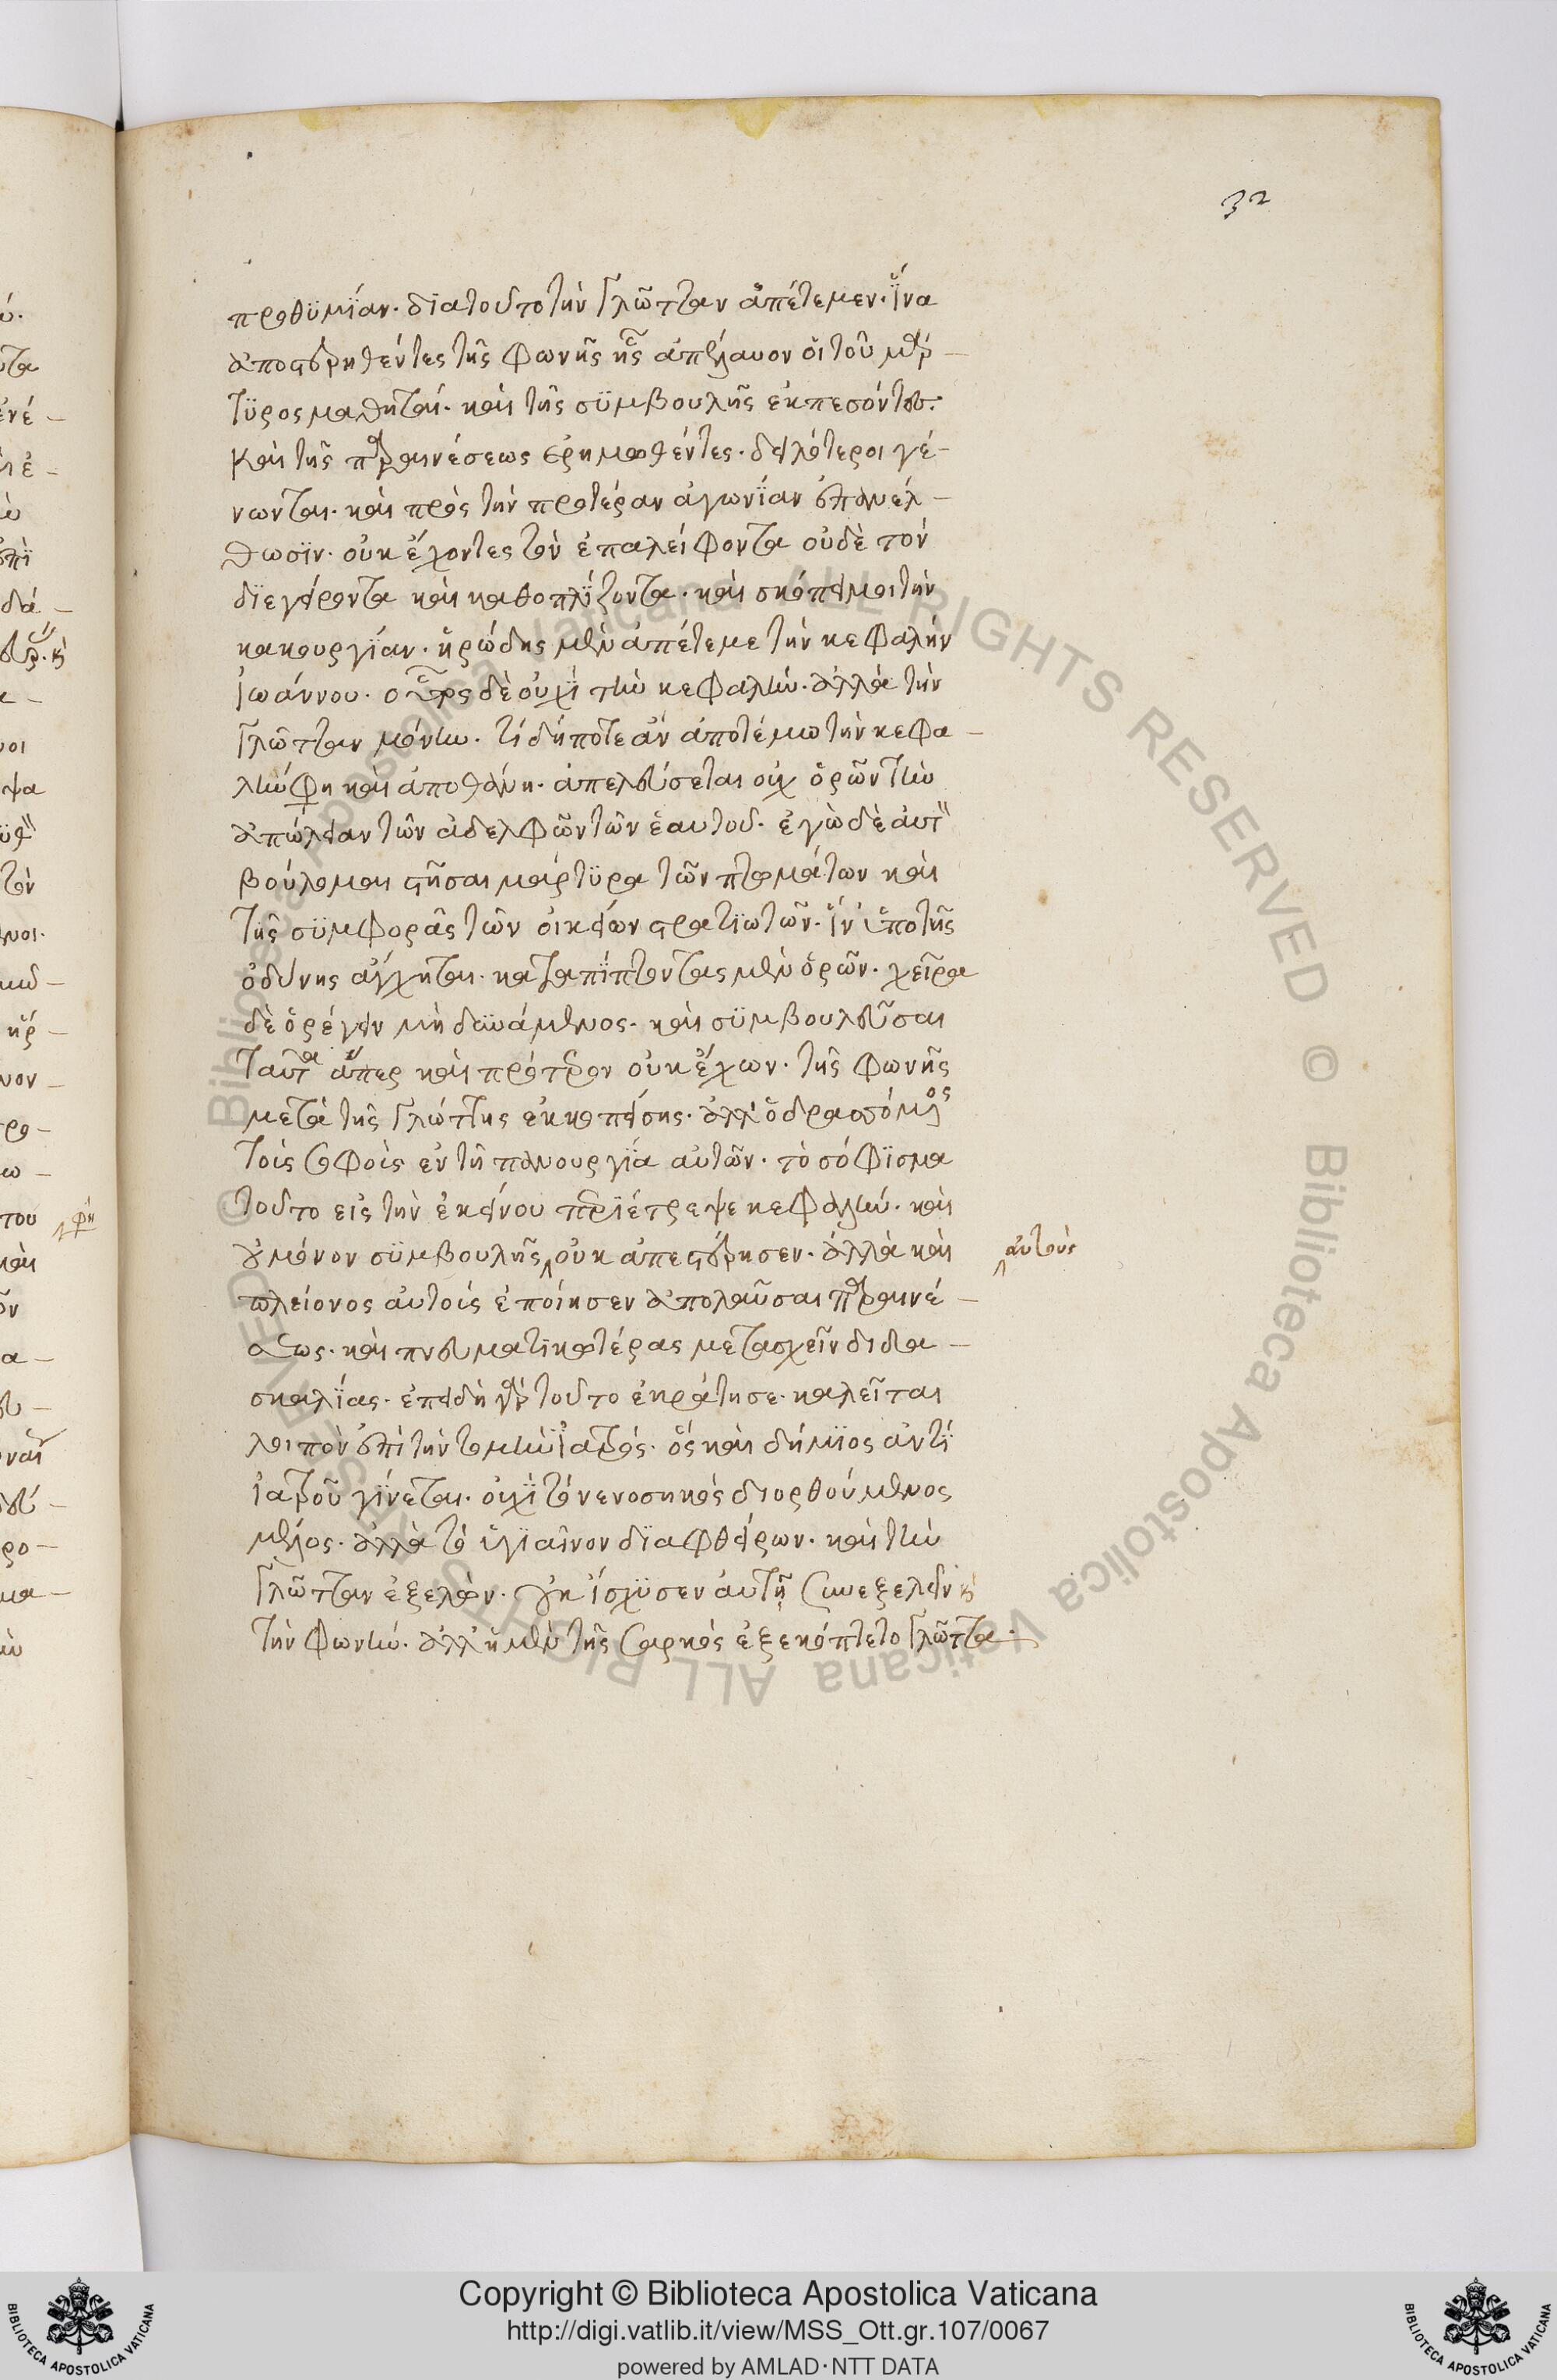 32
προθϋμΐαν. δϊατοῦτο τὴν γλῶτταν ἀπέτεμεν. ἵνα
ἀποστερηθέντες τῆς φωνῆς ἧς ἀπέλαυον οἱ τοῦ μάρ-
τϋρος μαθηταί. καὶ τῆς σϋμβουλῆς ἐκπεσόντες.
καὶ τῆς παραινέσεως ἐρημωθέντες. δειλότεροι γέ-
νωνται. καὶ πρὸς τὴν προτέραν ἀγωνΐαν ἐπανέλ-
θωσϊν. οὐκ ἔχοντες τὸν ἐπαλείφοντα οὐδὲ τὸν
δϊεγείροντα καὶ καθοπλΐζοντα. καὶ σκόπει μοι τὴν
κακουργΐαν. ἡρώδης μὲν ἀπέτεμε τὴν κεφαλὴν
ἰωάννου. οὗτος δὲ οὐχῒ τὴν κεφαλήν. ἀλλὰ τὴν
γλῶτταν μόνην. τί δήποτε ἂν ἀποτέμω τὴν κεφα-
λήν φη καὶ ἀποθάνη. ἀπελεύσεται οὐχ ὁρῶν τὴν
ἀπώλειαν τῶν ἀδελφῶν τῶν ἑαυτοῦ. ἐγὼ δὲ αὐτ
βούλομαι στῆσαι μάρτϋρα τῶν πτωμάτων καὶ
τῆς σϋμφορᾶς τῶν οἰκείων στρατϊωτῶν. ἵν' ὑπὸ τῆς
ὀδύνης ἄγχηται. καταπΐπτοντας μὲν ὁρῶν. χεῖρα
δὲ ὀρέγειν μὴ δϋνάμενος. καὶ σϋμβουλεῦσαι
ταῦτα ἅπερ καὶ πρότερον οὐκ ἔχων. τῆς φωνῆς
μετὰ τῆς γλώττης ἐκκοπείσης. ἀλλ' ὁ δρασσόμενος
τοὺς σοφοὺς ἐν τῇ πανουργΐα αὐτῶν. τὸ σόφϊσμα
τοῦτο εἰς τὴν ἐκείνου περϊέτρεψε κεφαλήν. καὶ
οὐ μόνον σϋμβουλῆς οὐκ ἀπεστέρησεν. ἀλλὰ καὶ
αὐτοὺς
πλείονος αὐτοὺς ἐποίησεν ἀπολαῦσαι παραινέ-
σεως. καὶ πνευματϊκωτέρας μετασχεῖν διδα-
σκαλΐας. ἐπειδὴ γὰρ τοῦτο ἐκράτησε. καλεῖται
λοιπὸν ἐπὶ τὴν τομὴν ἰατρός. ὃς καὶ δήμϊος ἀντῒ
ἰατροῦ γΐνεται. οὐχῒ τὸ νενοσηκὸς διορθούμενος
μέλος. ἀλλὰ τὸ ὑγϊαῖνον δϊαφθείρων. καὶ τὴν
γλῶτταν ἐξελὼν. οὐκ ἴσχϋσεν αὐτῇ συνεξελεῖν καὶ
τὴν φωνήν. ἀλλ' ἡ μὲν τῆς σαρκὸς ἐξεκόπτετο γλῶττα.
© Biblioteca Apostolica Vaticana ALL RIGHTS RESERVED © Biblioteca Apostolica Vaticana ALL RIGHTS RESERVED
Copyright © Biblioteca Apostolica Vaticana
http://digi.vatlib.it/view/MSS_Ott.gr.107/0067
powered by AMLAD·NTT DATA
BIBLIOTECA APOSTOLICA VATICANA
BIBLIOTECA APOSTOLICA VATICANA